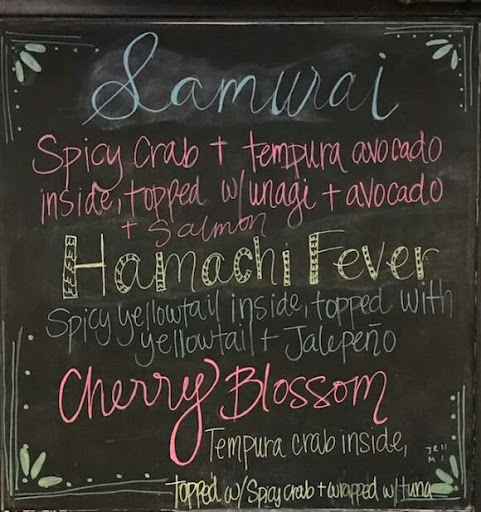 Samurai
Spicy Crab + tempura avocado
inside, topped w/unagi + avocado
+ Salmon
Hamachi Fever
Spicy yellowtail inside, topped with
yellowtail + Jalepeño
Cherry Blossom
Tempura crab inside,
topped w/ Spicy crab + wrapped w/ tuna